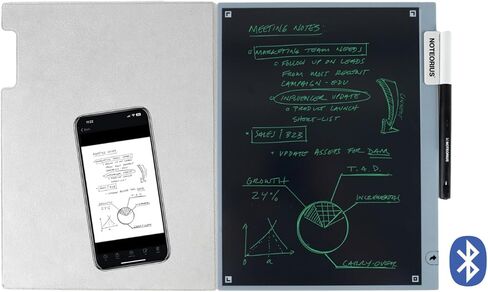 MEETING NOTES:
MARKETING TEAM NEEDS
FOLLOW UP ON LEADS
FROM MOST RECENT
CAMPAIGN - EDU
INFLUENCER UPDATE
PRODUCT LAUNCH
SHORT-LIST
SALES / B2B
UPDATE ASSETS FOR DAM
GROWTH
24%
T.A.D.
INCREMENTAL
CARRY-OVER
0 a
NOTEORIUS
11:22
MEETING NOTES: